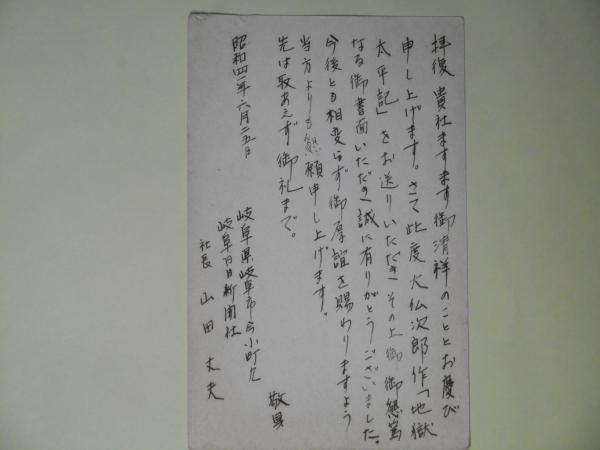 拝復 貴社ますます御清祥のこととお慶び
申し上げます。さて此度大仏次郎作「地獄
太平記」をお送りいただき その上御 御懇篤
なる御書面いただき誠に有りがとうございました。
今後とも相変らず御厚誼を賜わりますよう
当方よりも懇願申し上げます。
先は取あえず御礼まで。
敬具
昭和四一年六月二五日
岐阜県岐阜市今小町九
岐阜日日新聞社
社長 山田丈夫